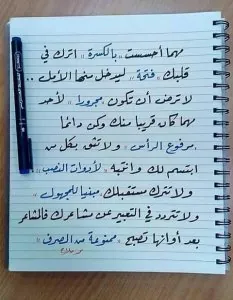 مهما أحسست " بالكسرة " اترك في
قلبك " فتحة " ليدخل منها الأمل ..
لا ترض أن تكون " مجرورا " لأحد
مهما كان قريبا منك وكن دائما
" مرفوع الرأس " ولا تثق بكل من
ابتسم لك وانتبه " لأدوات النصب "
ولا تترك مستقبلك " مبنيا للمجهول "
ولا تتردد في التعبير عن مشاعرك فالمشاعر
بعد أوانها تصبح " ممنوعة من الصرف "